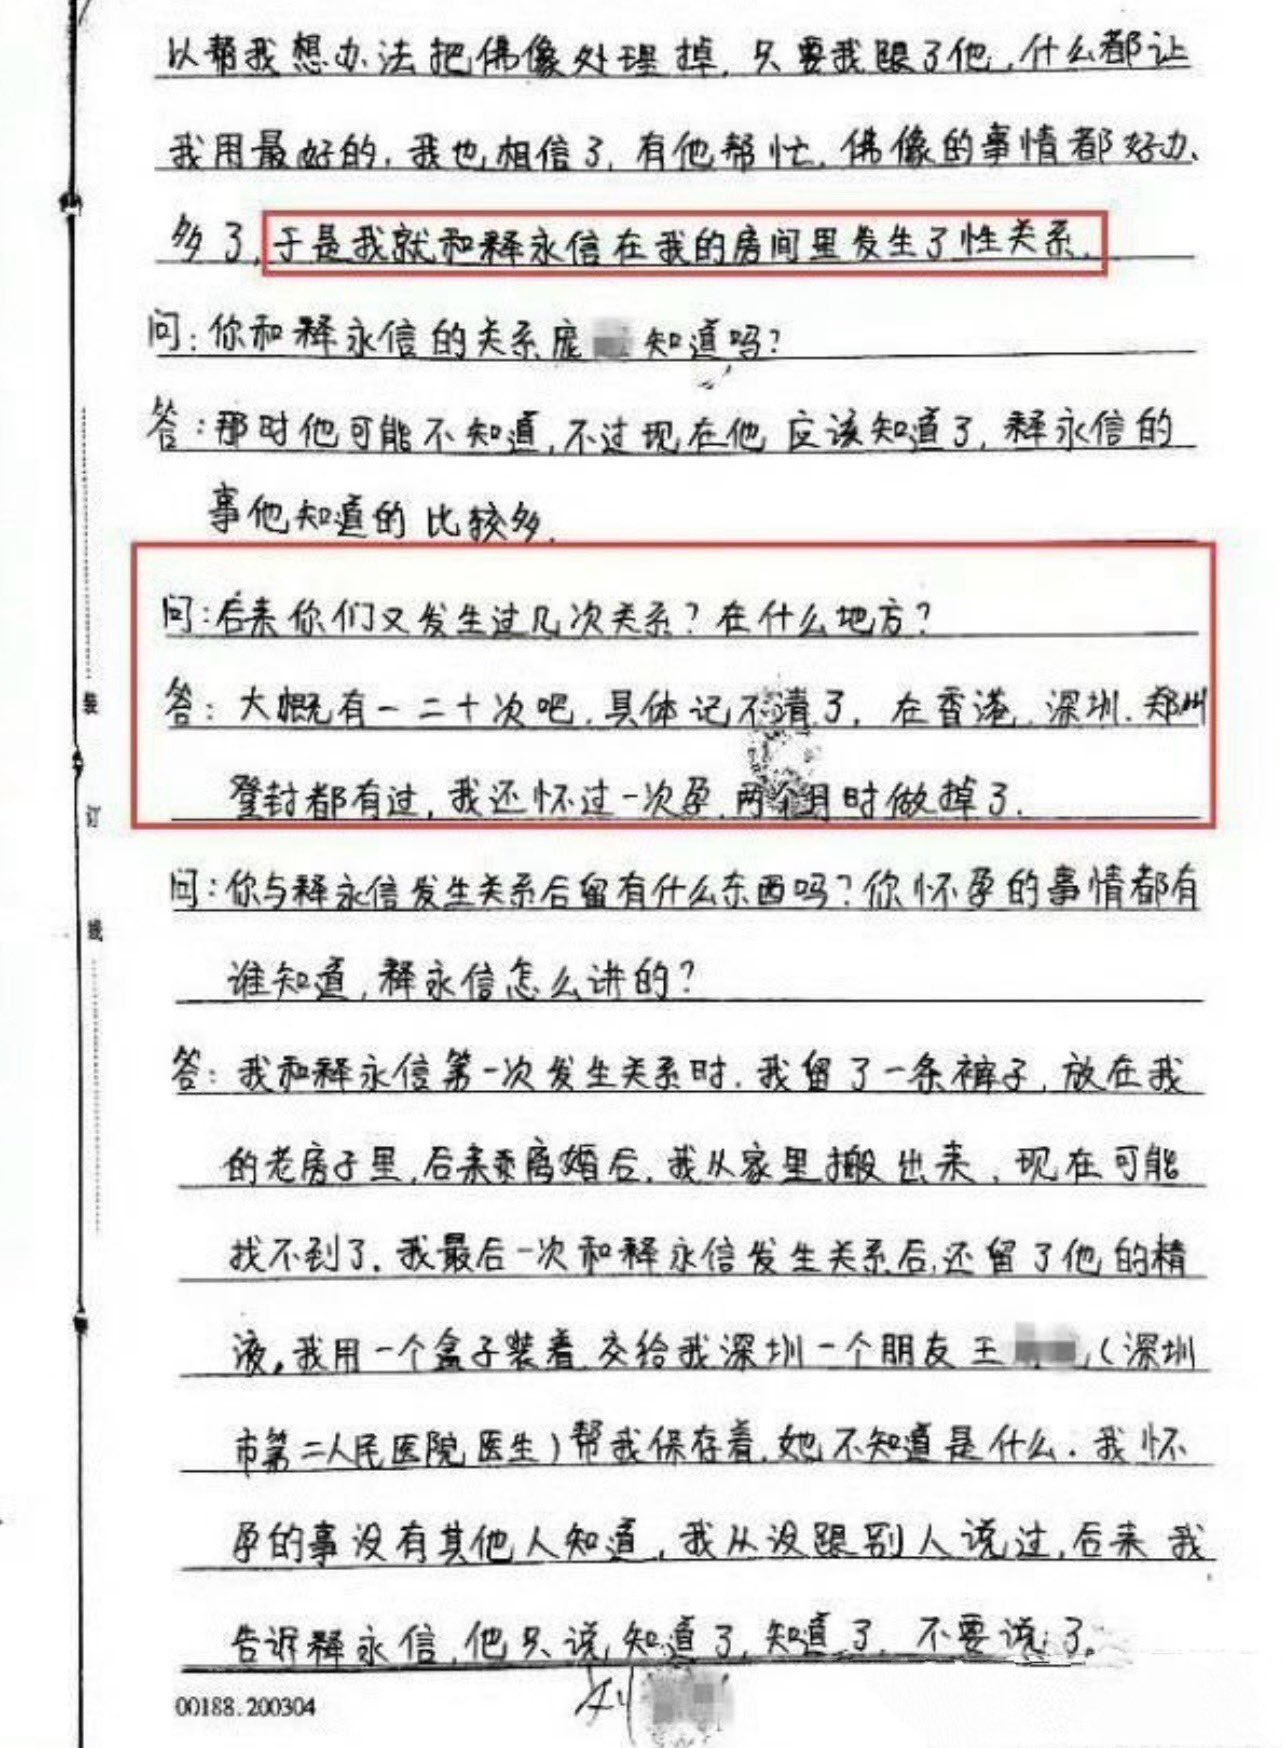 以帮我想办法把佛像处理掉,只要我跟了他,什么都让
我用最好的,我也相信了,有他帮忙,佛像的事情都好办
多了,于是我就和释永信在我的房间里发生了性关系.
问:你和释永信的关系庞 知道吗?
答:那时他可能不知道,不过现在他应该知道了,释永信的
事他知道的比较多.
问:后来你们又发生过几次关系?在什么地方?
答:大概有一二十次吧,具体记不清了,在香港、深圳、郑州
登封都有过,我还怀过一次孕,两个月时做掉了.
问:你与释永信发生关系后留有什么东西吗?你怀孕的事情都有
谁知道,释永信怎么讲的?
答:我和释永信第一次发生关系时,我留了一条裤子,放在我
的老房子里,后来离婚后,我从家里搬出来,现在可能
找不到了.我最后一次和释永信发生关系后,还留了他的精
液,我用一个盒子装着,交给我深圳一个朋友王 ,(深圳
市第二人民医院医生)帮我保存着,她不知道是什么.我怀
孕的事没有其他人知道,我从没跟别人说过,后来我
告诉释永信,他只说,知道了,知道了,不要说了。
00188.200304
刘
装
订
线